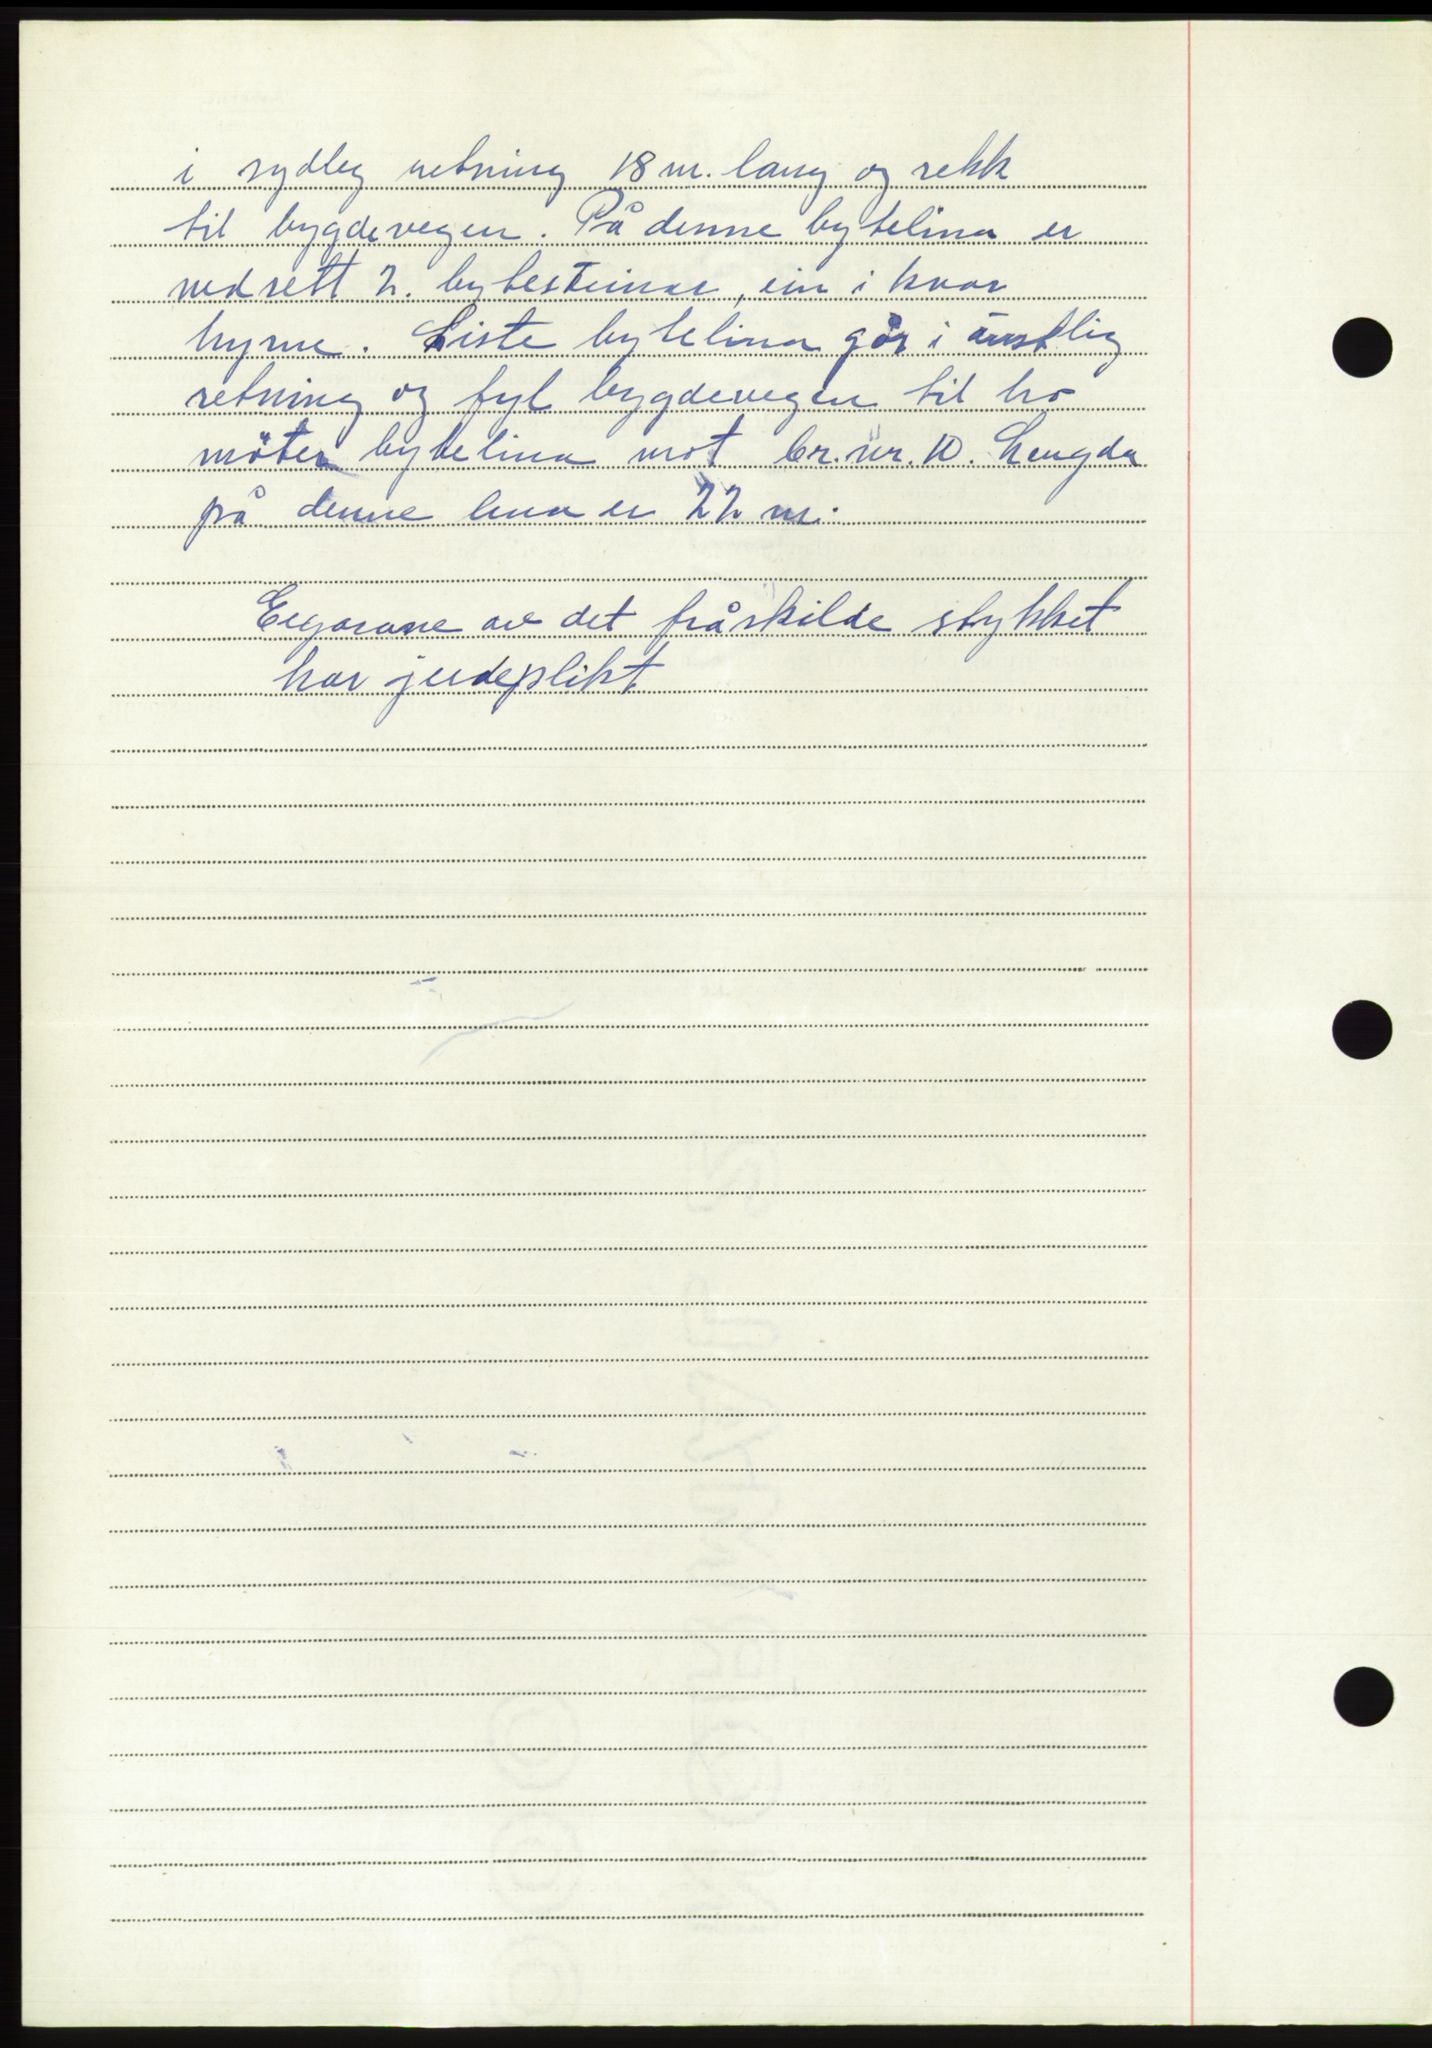 i sydleg retning 18 m. lang og rekk
til bygdevegen. På denne bytelina er
nedsett 2. bytesteinar, ein i kvar
hyrne. Siste bytelina går i austlig
retning og fyl bygdevegen til ho
möter bytelina mot br.nr. 10. Lengda
på denne lina er 22 m.
Eigarane av det fråskilde stykket
har gjerdeplikt